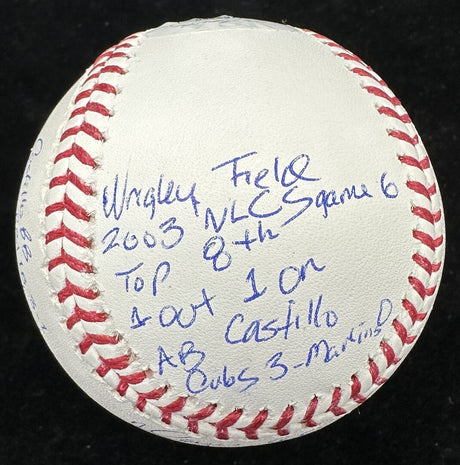 Wrigley Field
2003 NLCS game 6
Top 8th
1 out 1 on
AB Castillo
Cubs 3-Marlins 0